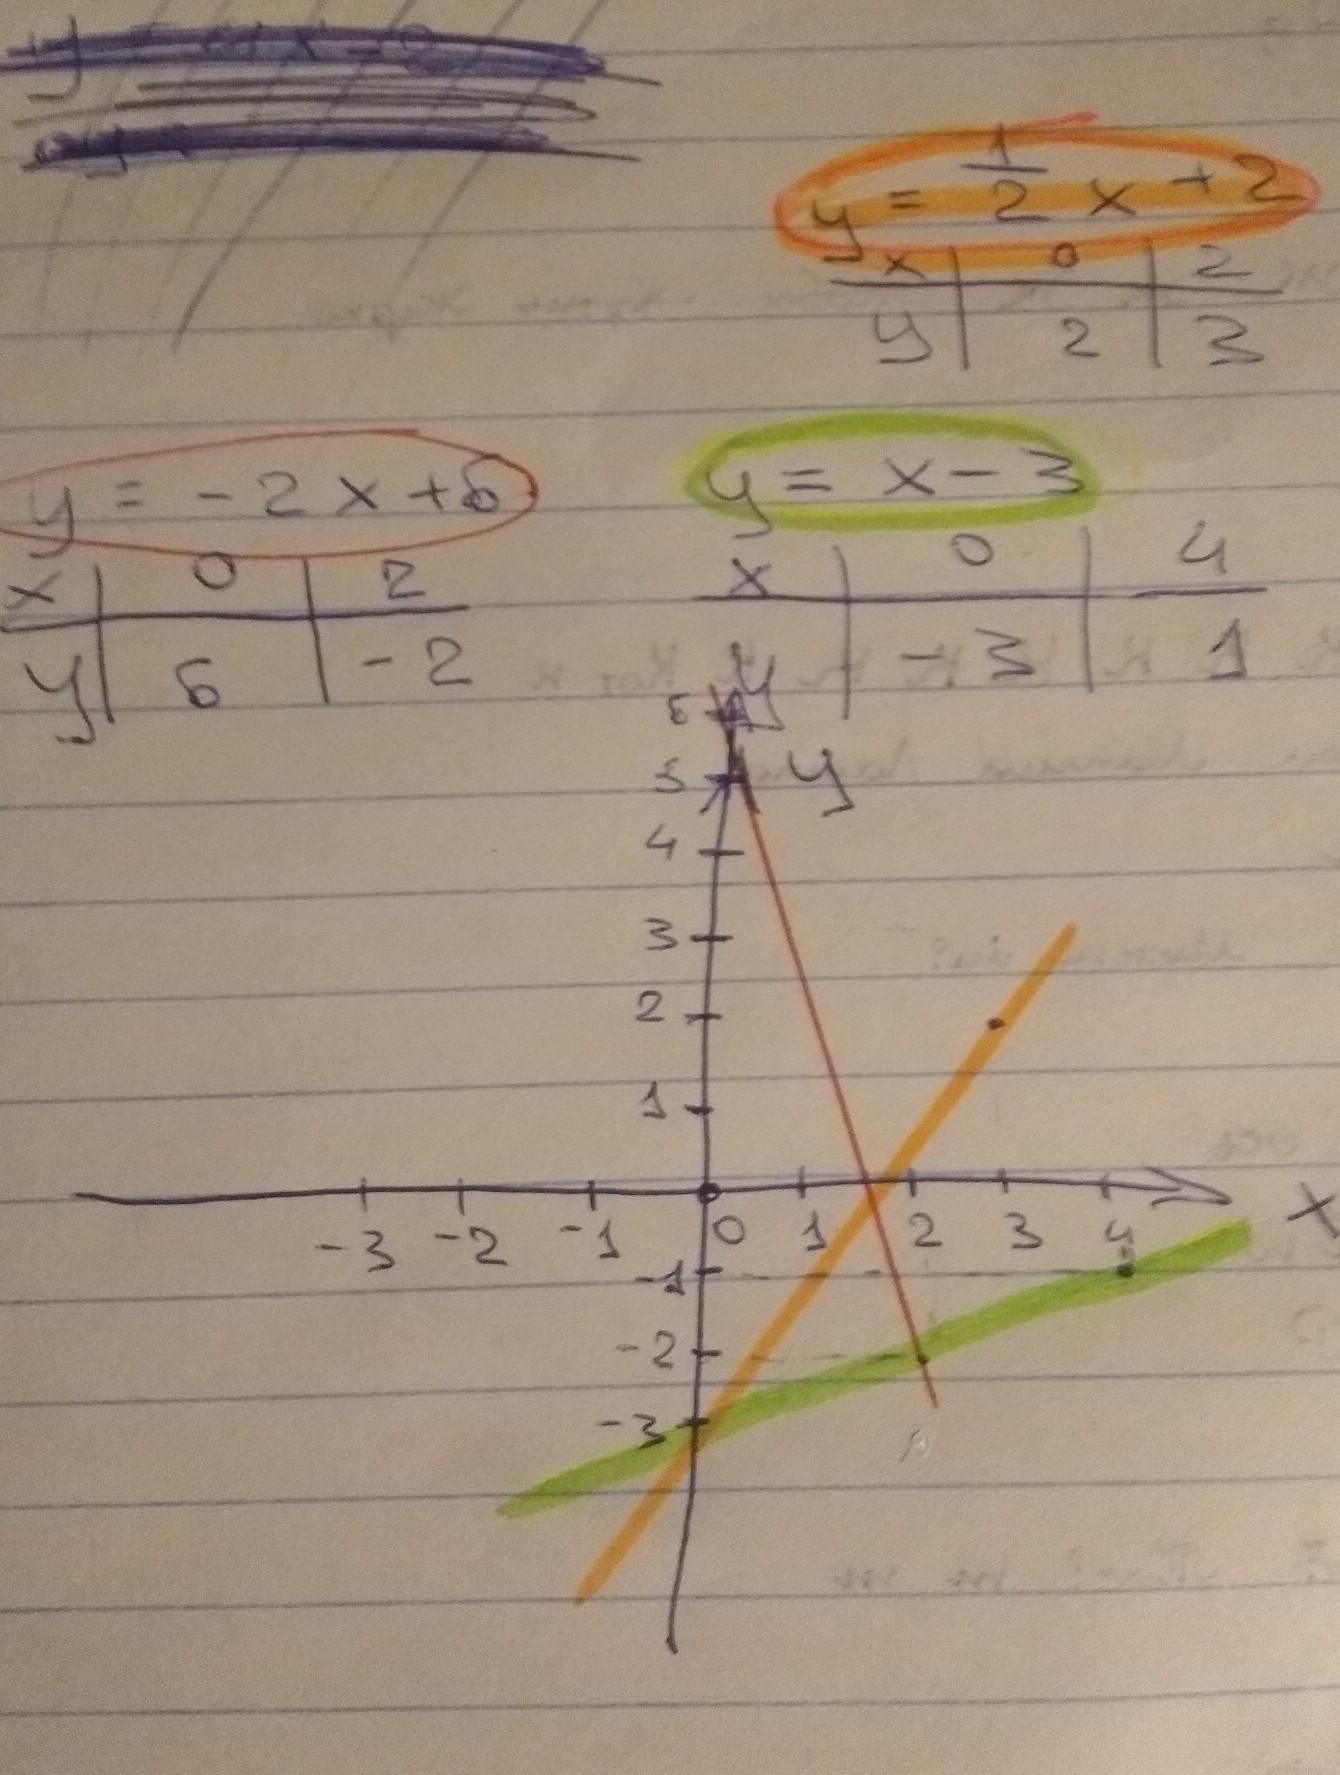 y = 1/2 x + 2
x | 0 | 2
y | 2 | 3
y = -2x+6
x | 0 | 2
y | 6 | -2
y = x - 3
x | 0 | 4
y | -3 | 1
y
6
5 y
4
3
2
1
-3 -2 -1 0 1 2 3 4 x
-1
-2
-3